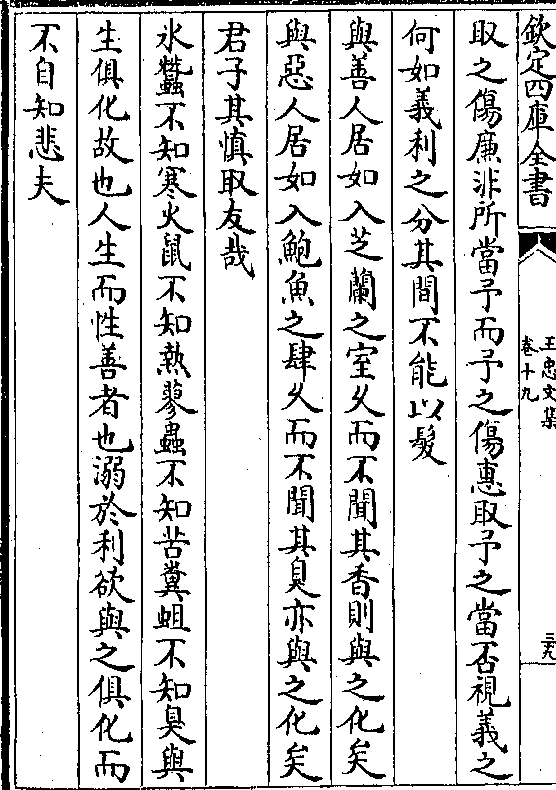 欽定四庫全書
王忠文集
卷十九
三九
取之傷廉非所當予而予之傷惠取予之當否視義之
何如義利之分其間不能以髮
與善人居如入芝蘭之室乆而不聞其香則與之化矣
與惡人居如入鮑魚之肆乆而不聞其臭亦與之化矣
君子其慎取友哉
氷蠶不知寒火鼠不知熱蓼蟲不知苦糞蛆不知臭與
生俱化故也人生而性善者也溺於利欲與之俱化而
不自知悲夫